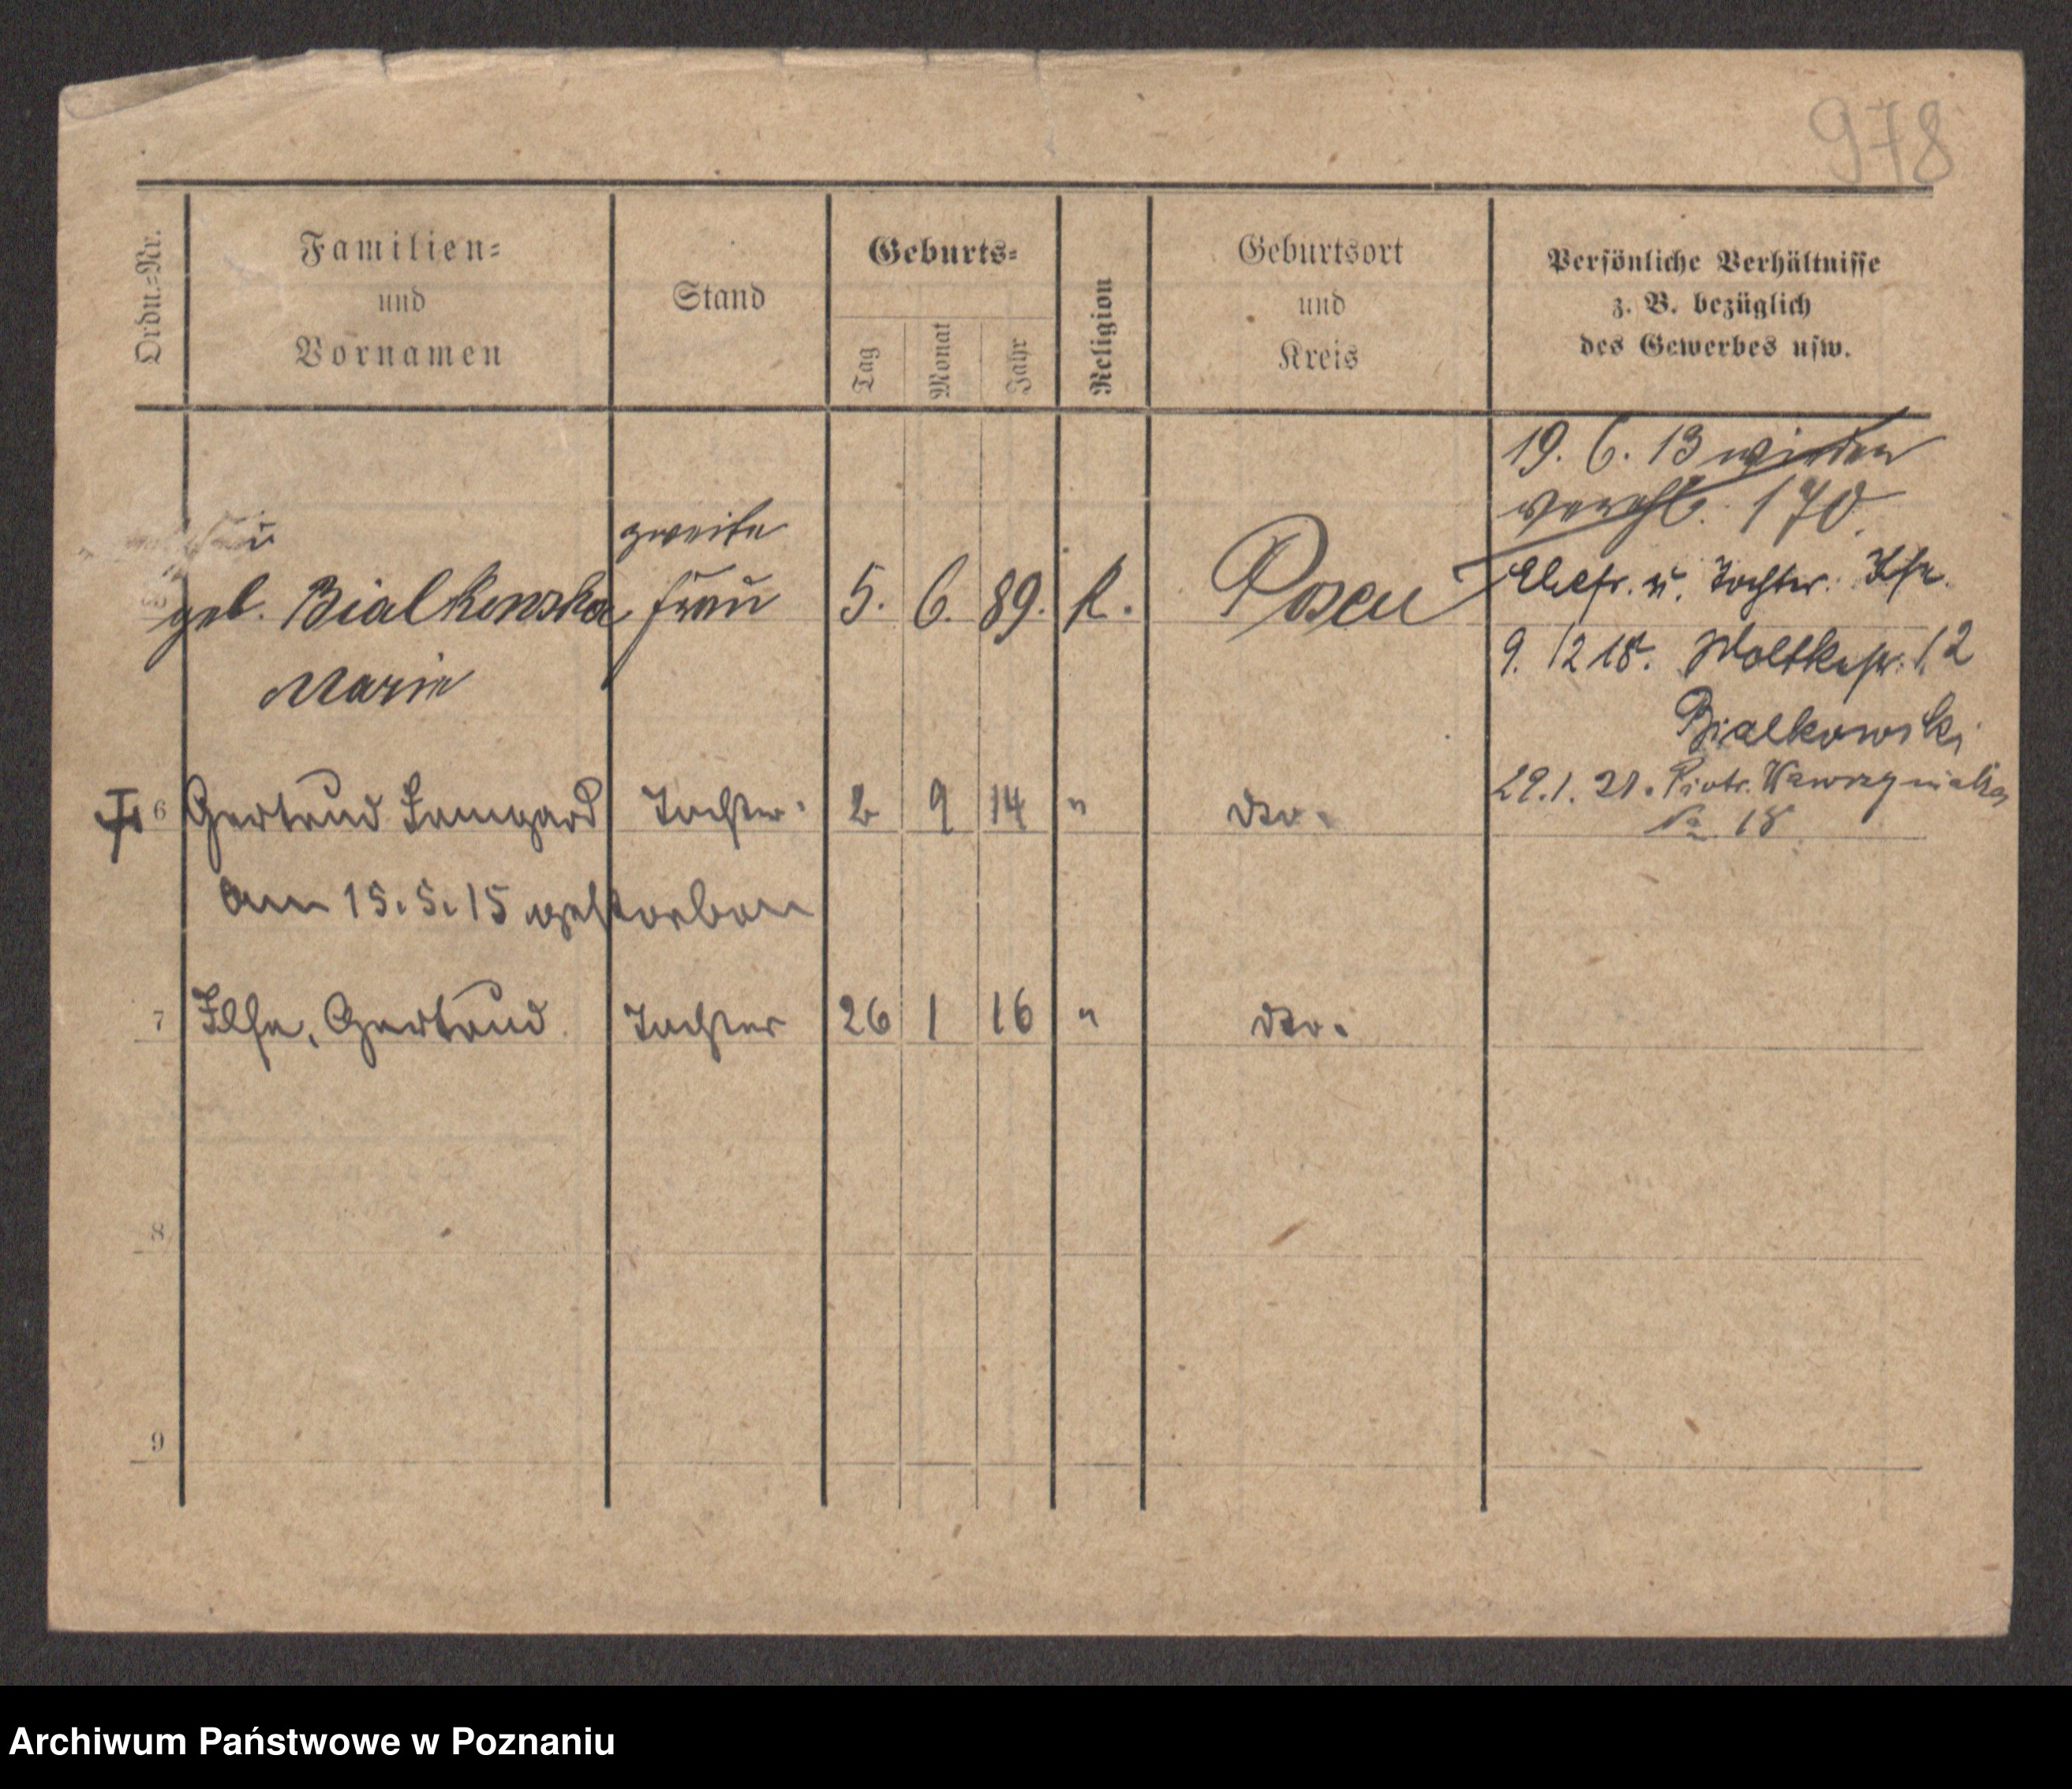 978
Ordn.=Nr.
Familien=
und
Vornamen
Stand
Geburts=
Tag
Monat
Jahr
Religion
Geburtsort
und
Kreis
Persönliche Verhältnisse
z. B. bezüglich
des Gewerbes usw.
19. 6. 13
verehl. 170.
zweite
geb. Bialkowska Frau 5. 6. 89. K. Posen
Marie
Ehefr. u. Tochter Ilse.
9. 12 18. Moltkestr. 12
Bialkowski
29. 1. 21. Piotr. Wawrzyniaka
No 18
6 Gertrud Irmgard Tochter. 2 9 14 " dto.
am 15. 5. 15 gestorben
7 Ilse, Gertrud Tochter 26 1 16 " dto.
8
9
Archiwum Państwowe w Poznaniu